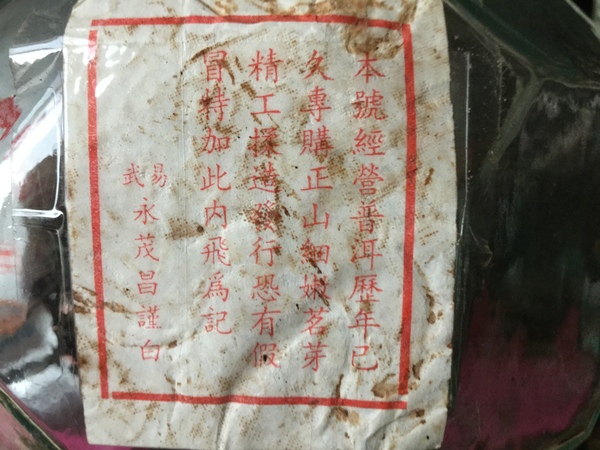 本號經營普洱歷年已
久專購正山細嫩茗芽
精工揉造發行恐有假
冒特加此內飛爲記
易武
永茂昌謹白